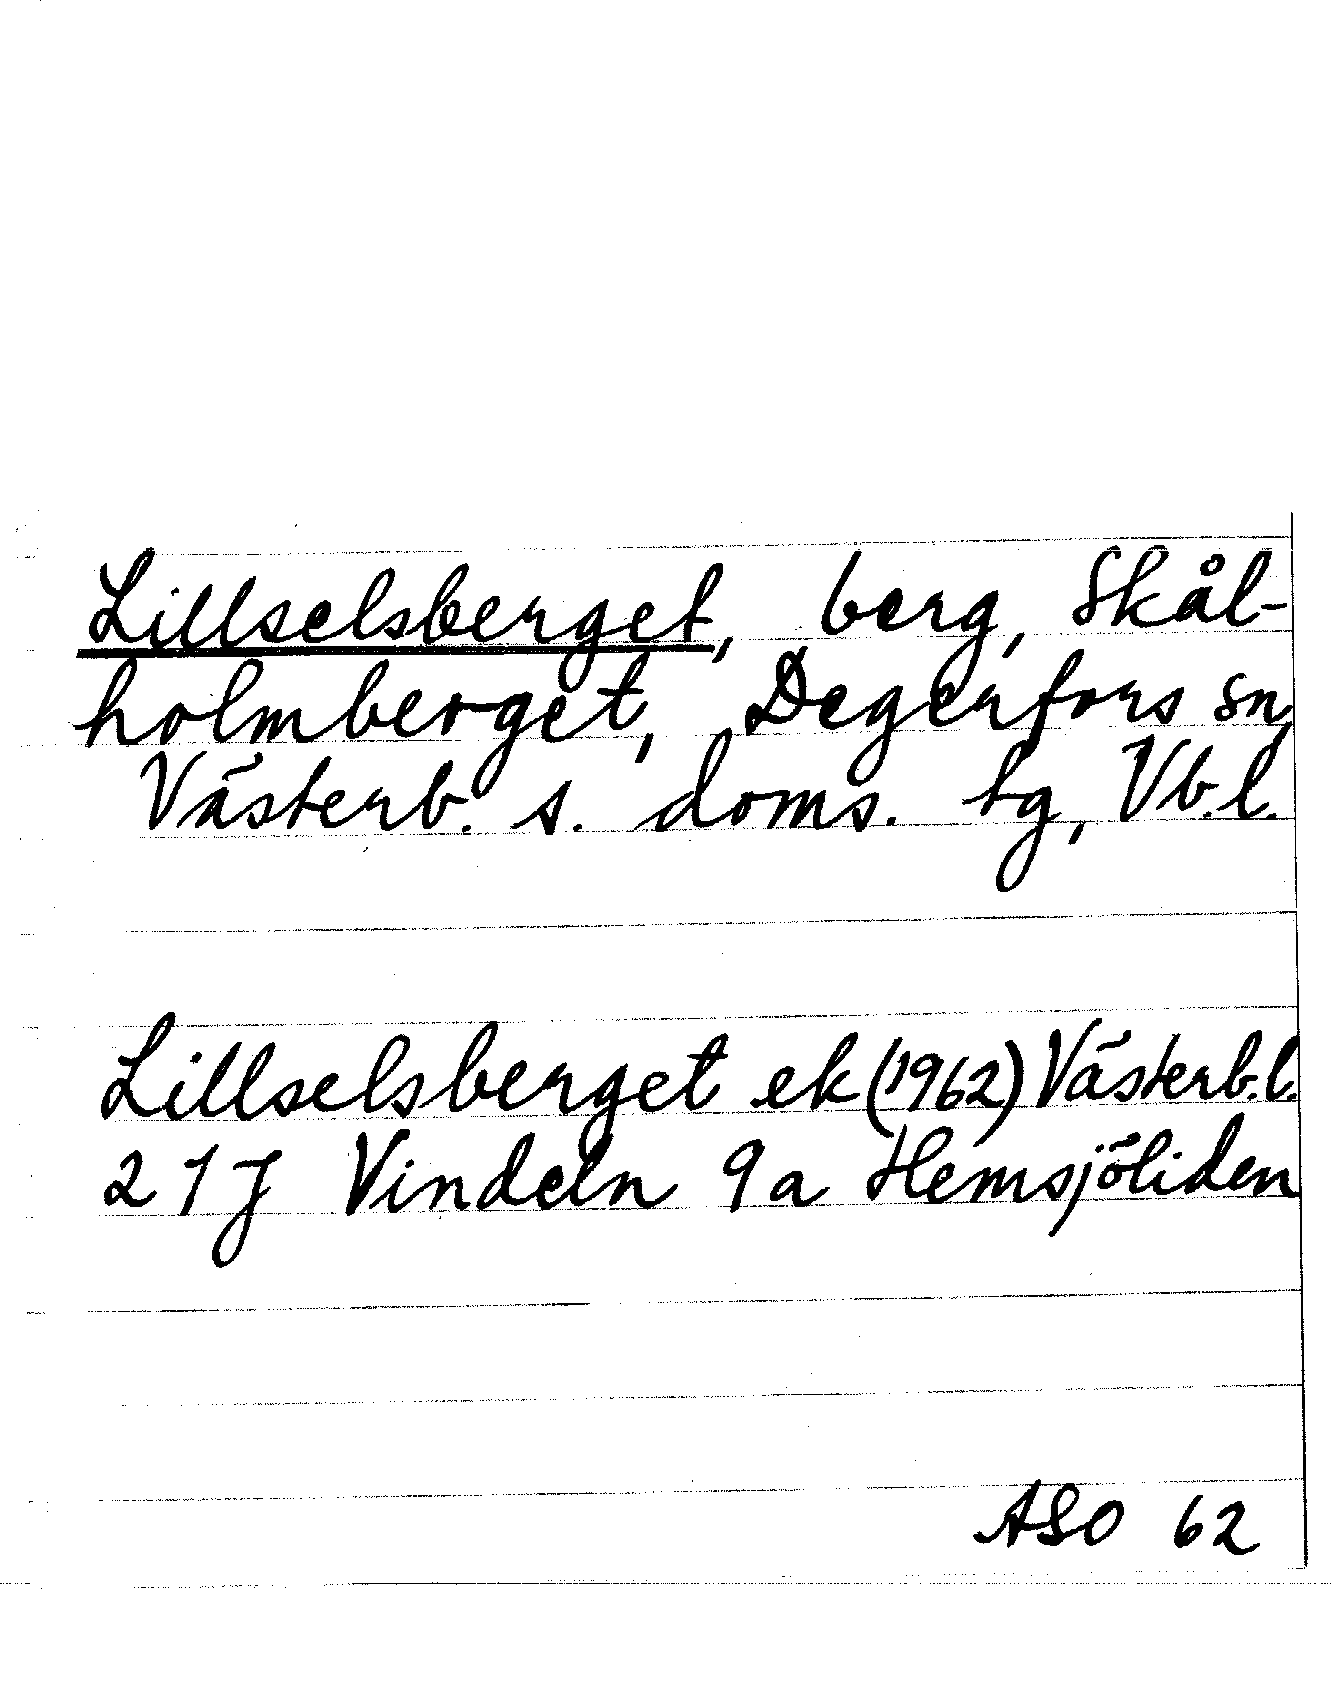 Lillselsberget, berg, Skål-
holmberget, Degerfors sn,
Västerb. s. doms. tg, Vb.l.
Lillselsberget ek (1962) Västerb.l.
21J Vindeln 9a Hemsjöliden
ASO 62